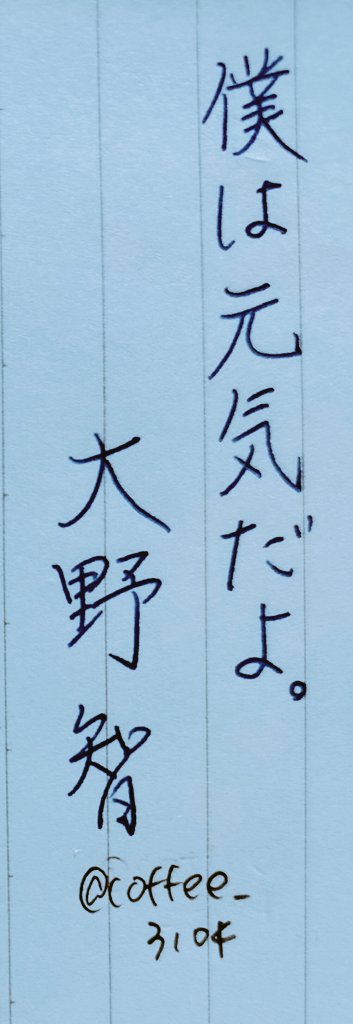 僕は元気だよ。
大野智
@coffee_
3104